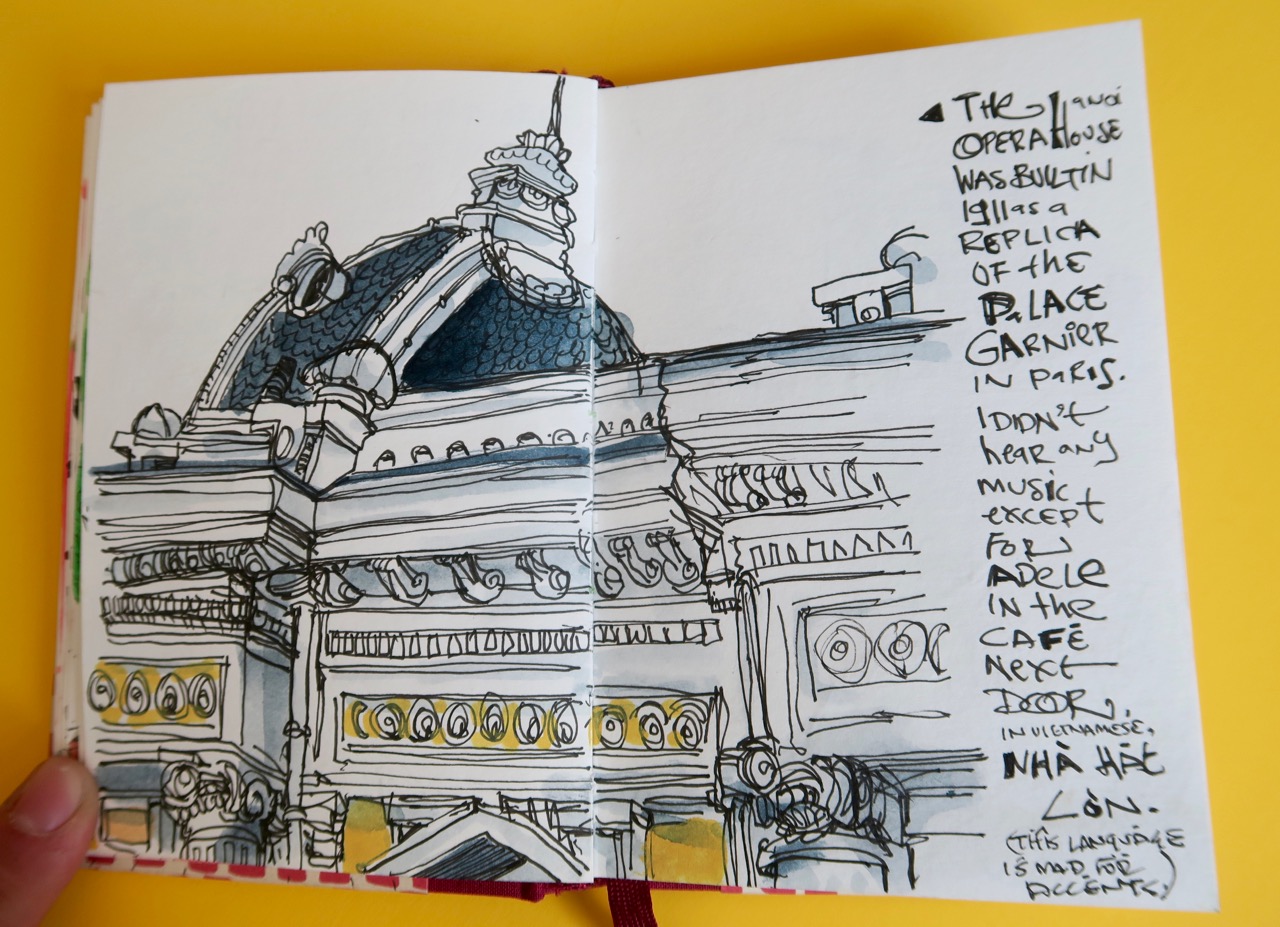 THE Hanoi
OPERA HOUSE
WAS BUILT IN
1911 as a
REPLICA
OF the
PaLACE
GARNIER
IN PARIS.
I DIDN't
hear any
music
except
FOR
ADELE
IN the
CAFÉ
Next
DOOR.
IN VIETNAMESE,
NHÀ HÁT
LỚN.
(THIS LANGUAGE
IS MAD FOR
ACCENTS.)